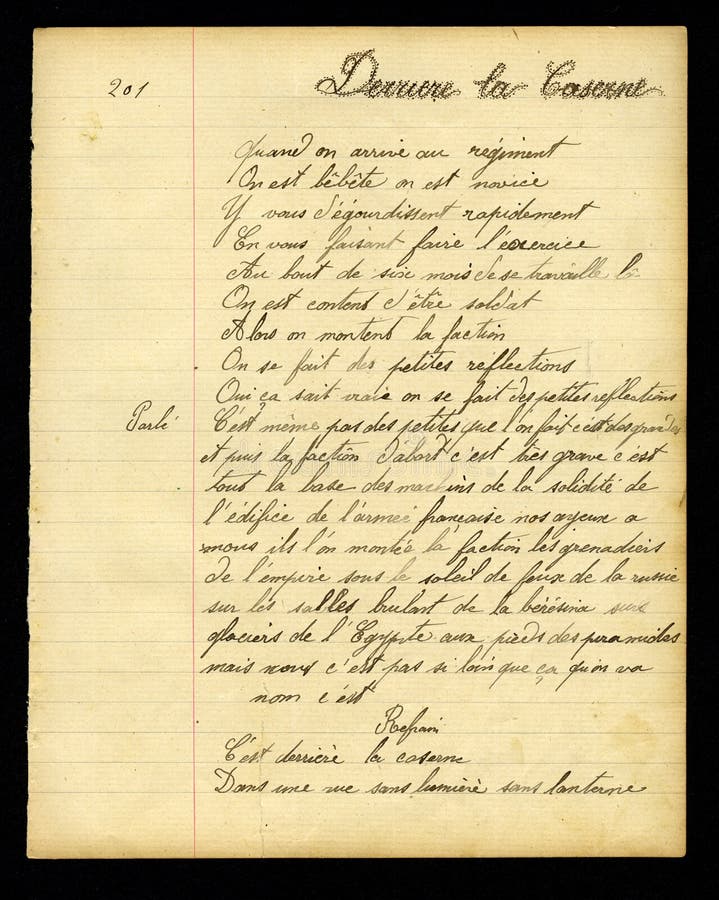 201
Derriere la Caserne
Quand on arrive au regiment
On est bêbête on est novice
Y vous dégourdissent rapidement
En vous faisant faire l'exercice
Au bout de six mois de se travaille là
On est content d'être soldat
Alors on montent la faction
On se fait des petites reflections
Oui ça sait vraie on se fait des petites reflections
Parlé
C'est même pas des petites que l'on fait c'est des grandes
et puis la faction d'abort c'est très grave c'est
tout la base des maçins de la solidité de
l'édifice de l'armée française nos ayeux a
nous ils l'on montée la faction les grenadiers
de l'empire sous le soleil de feux de la russie
sur les salles brulant de la bérésina sur
glaciers de l'Egypte aux pieds des piramides
mais nous c'est pas si loin que ça qu'on va
nom c'est
Refrain
C'est derrière la caserne
Dans une rue sans lumière sans lanterne